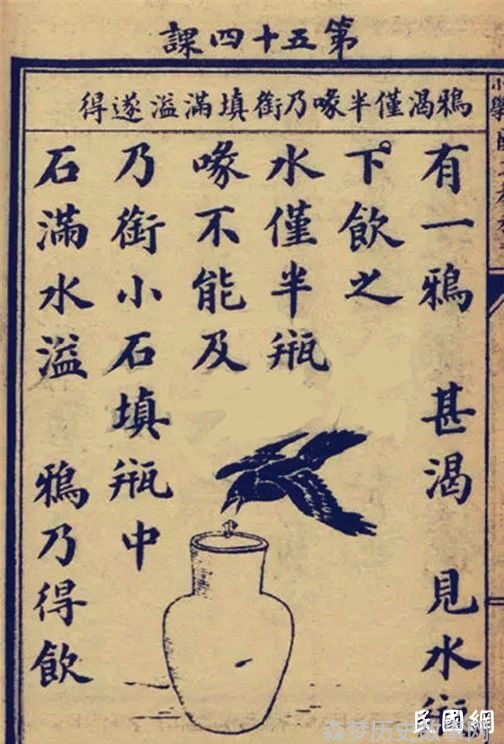 第五十四課
鴉渴僅半喙乃銜填滿溢遂得
有一鴉 甚渴 見水
下飲之
水僅半瓶
喙不能及
乃銜小石填瓶中
石滿水溢 鴉乃得飲
民國網